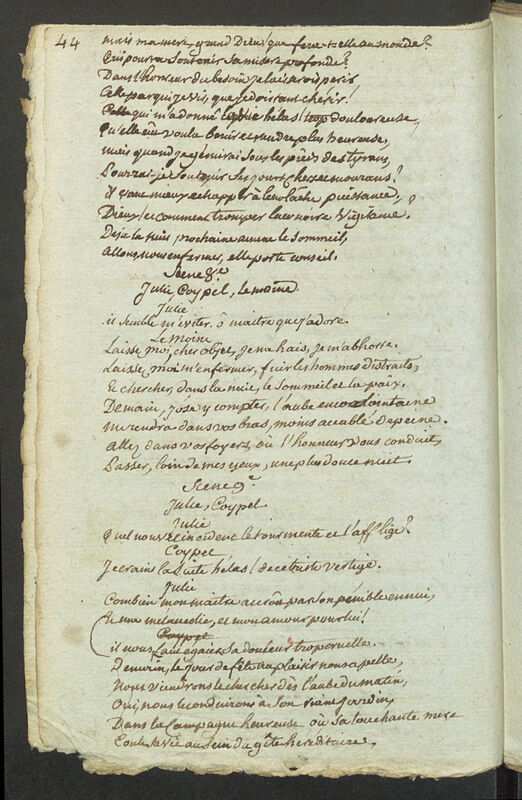 44
mais ma mere, grand Dieu! que fera-t-elle au monde?
Qui pourra soutenir sa misere profonde?
Dans l'horreur du besoin je laisserois perir
Celle par qui je vis, que je dois tant chérir!
Celle qui m'a donné hélas! trop douloureuse,
Qu'elle eût voulu bénir et rendre plus heureuse,
mais quand je gémirai sous les pieds des tyrans,
Pourrai-je soutenir ses jours chers et mourans?
il vaut mieux échapper à leur lâche puissance,
Dieux! et comment tromper leur noire vigilance?
Deja la nuit prochaine amene le sommeil,
allons nous enfermer, elle porte conseil.
Scene 8e
Julie, Coypel, Le moine
Julie
il semble m'eviter. ô maitre que j'adore.
Le Moine
Laisse moi, cher objet, je me hais, je m'abhorre.
Laisse moi m'enfermer, fuir les hommes distraits,
Et chercher, dans la nuit, le sommeil et la paix.
Demain, j'ose y compter, l'aube encore lointaine
me rendra dans vos bras, moins accablé de peine.
Allez dans vos foyers, où l'honneur vous conduit,
Passer, loin de mes yeux, une plus douce nuit.
Scene 9e
Julie, Coypel
Julie
Quel nouvel incident le tourmente et l'afflige?
Coypel
Je crains la suite hélas! de ce triste vertige.
Julie
Combien mon maitre accroit par son penible ennui,
Et ma melancolie, et mon amour pour lui!
Coypel
il nous faut égaier sa douleur trop cruelle.
Demain, le jour de fête au plaisir nous appelle,
Nous viendrons le chercher dès l'aube du matin,
Oui, nous le conduirons à son riant jardin,
Dans la campagne heureuse où sa touchante mere
Coule sa vie au sein du gîte hereditaire,